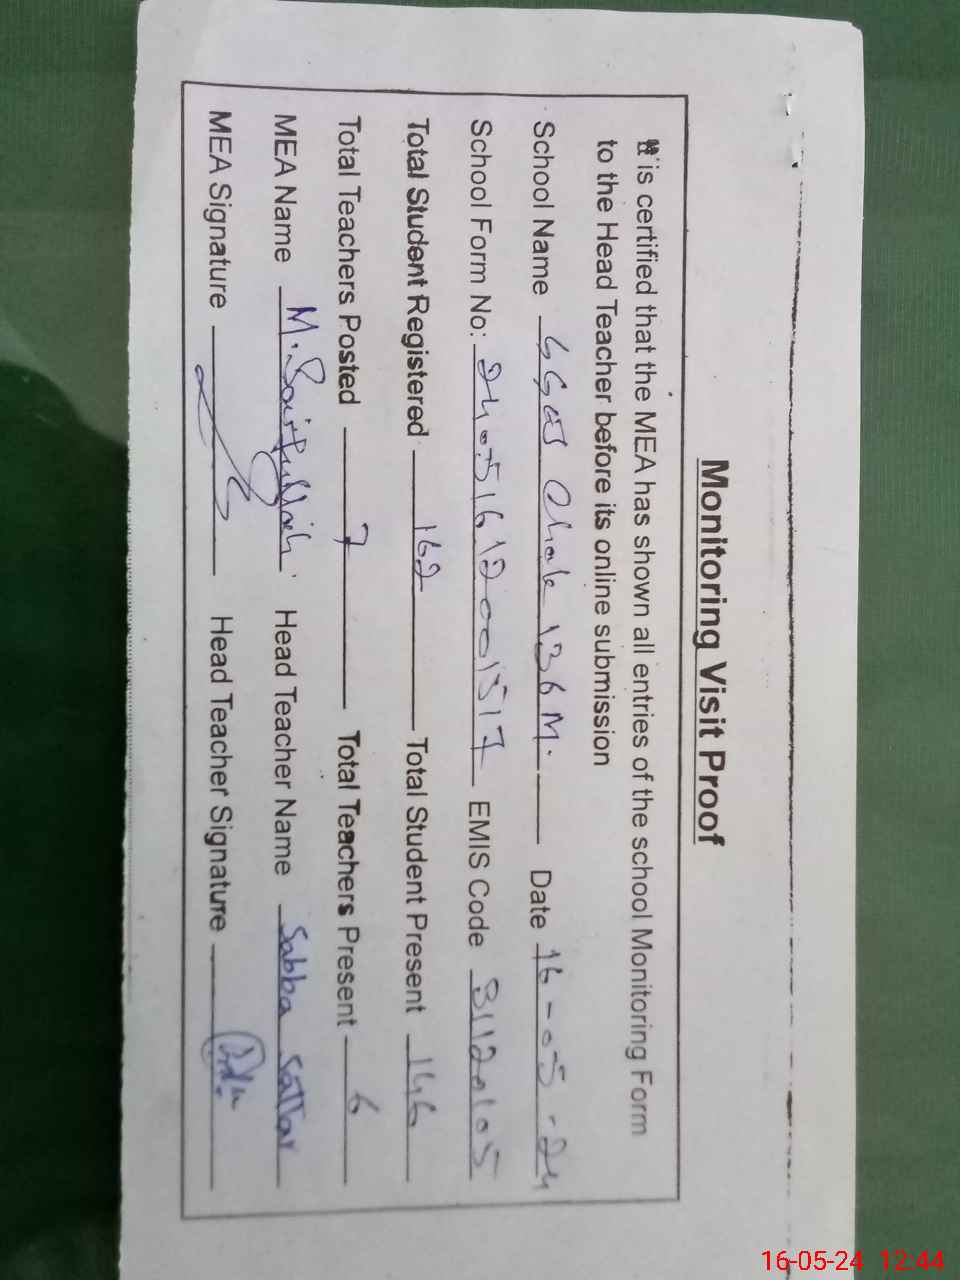 Monitoring Visit Proof
It is certified that the MEA has shown all entries of the school Monitoring Form
to the Head Teacher before its online submission
School Name GGES Chak 136 M. Date 16-05-24
School Form No: 24051612001517 EMIS Code 31120105
Total Student Registered 162 Total Student Present 146
Total Teachers Posted 7 Total Teachers Present 6
MEA Name M. Saifullah Head Teacher Name Sabba Sattar
MEA Signature Head Teacher Signature
16-05-24 12:44